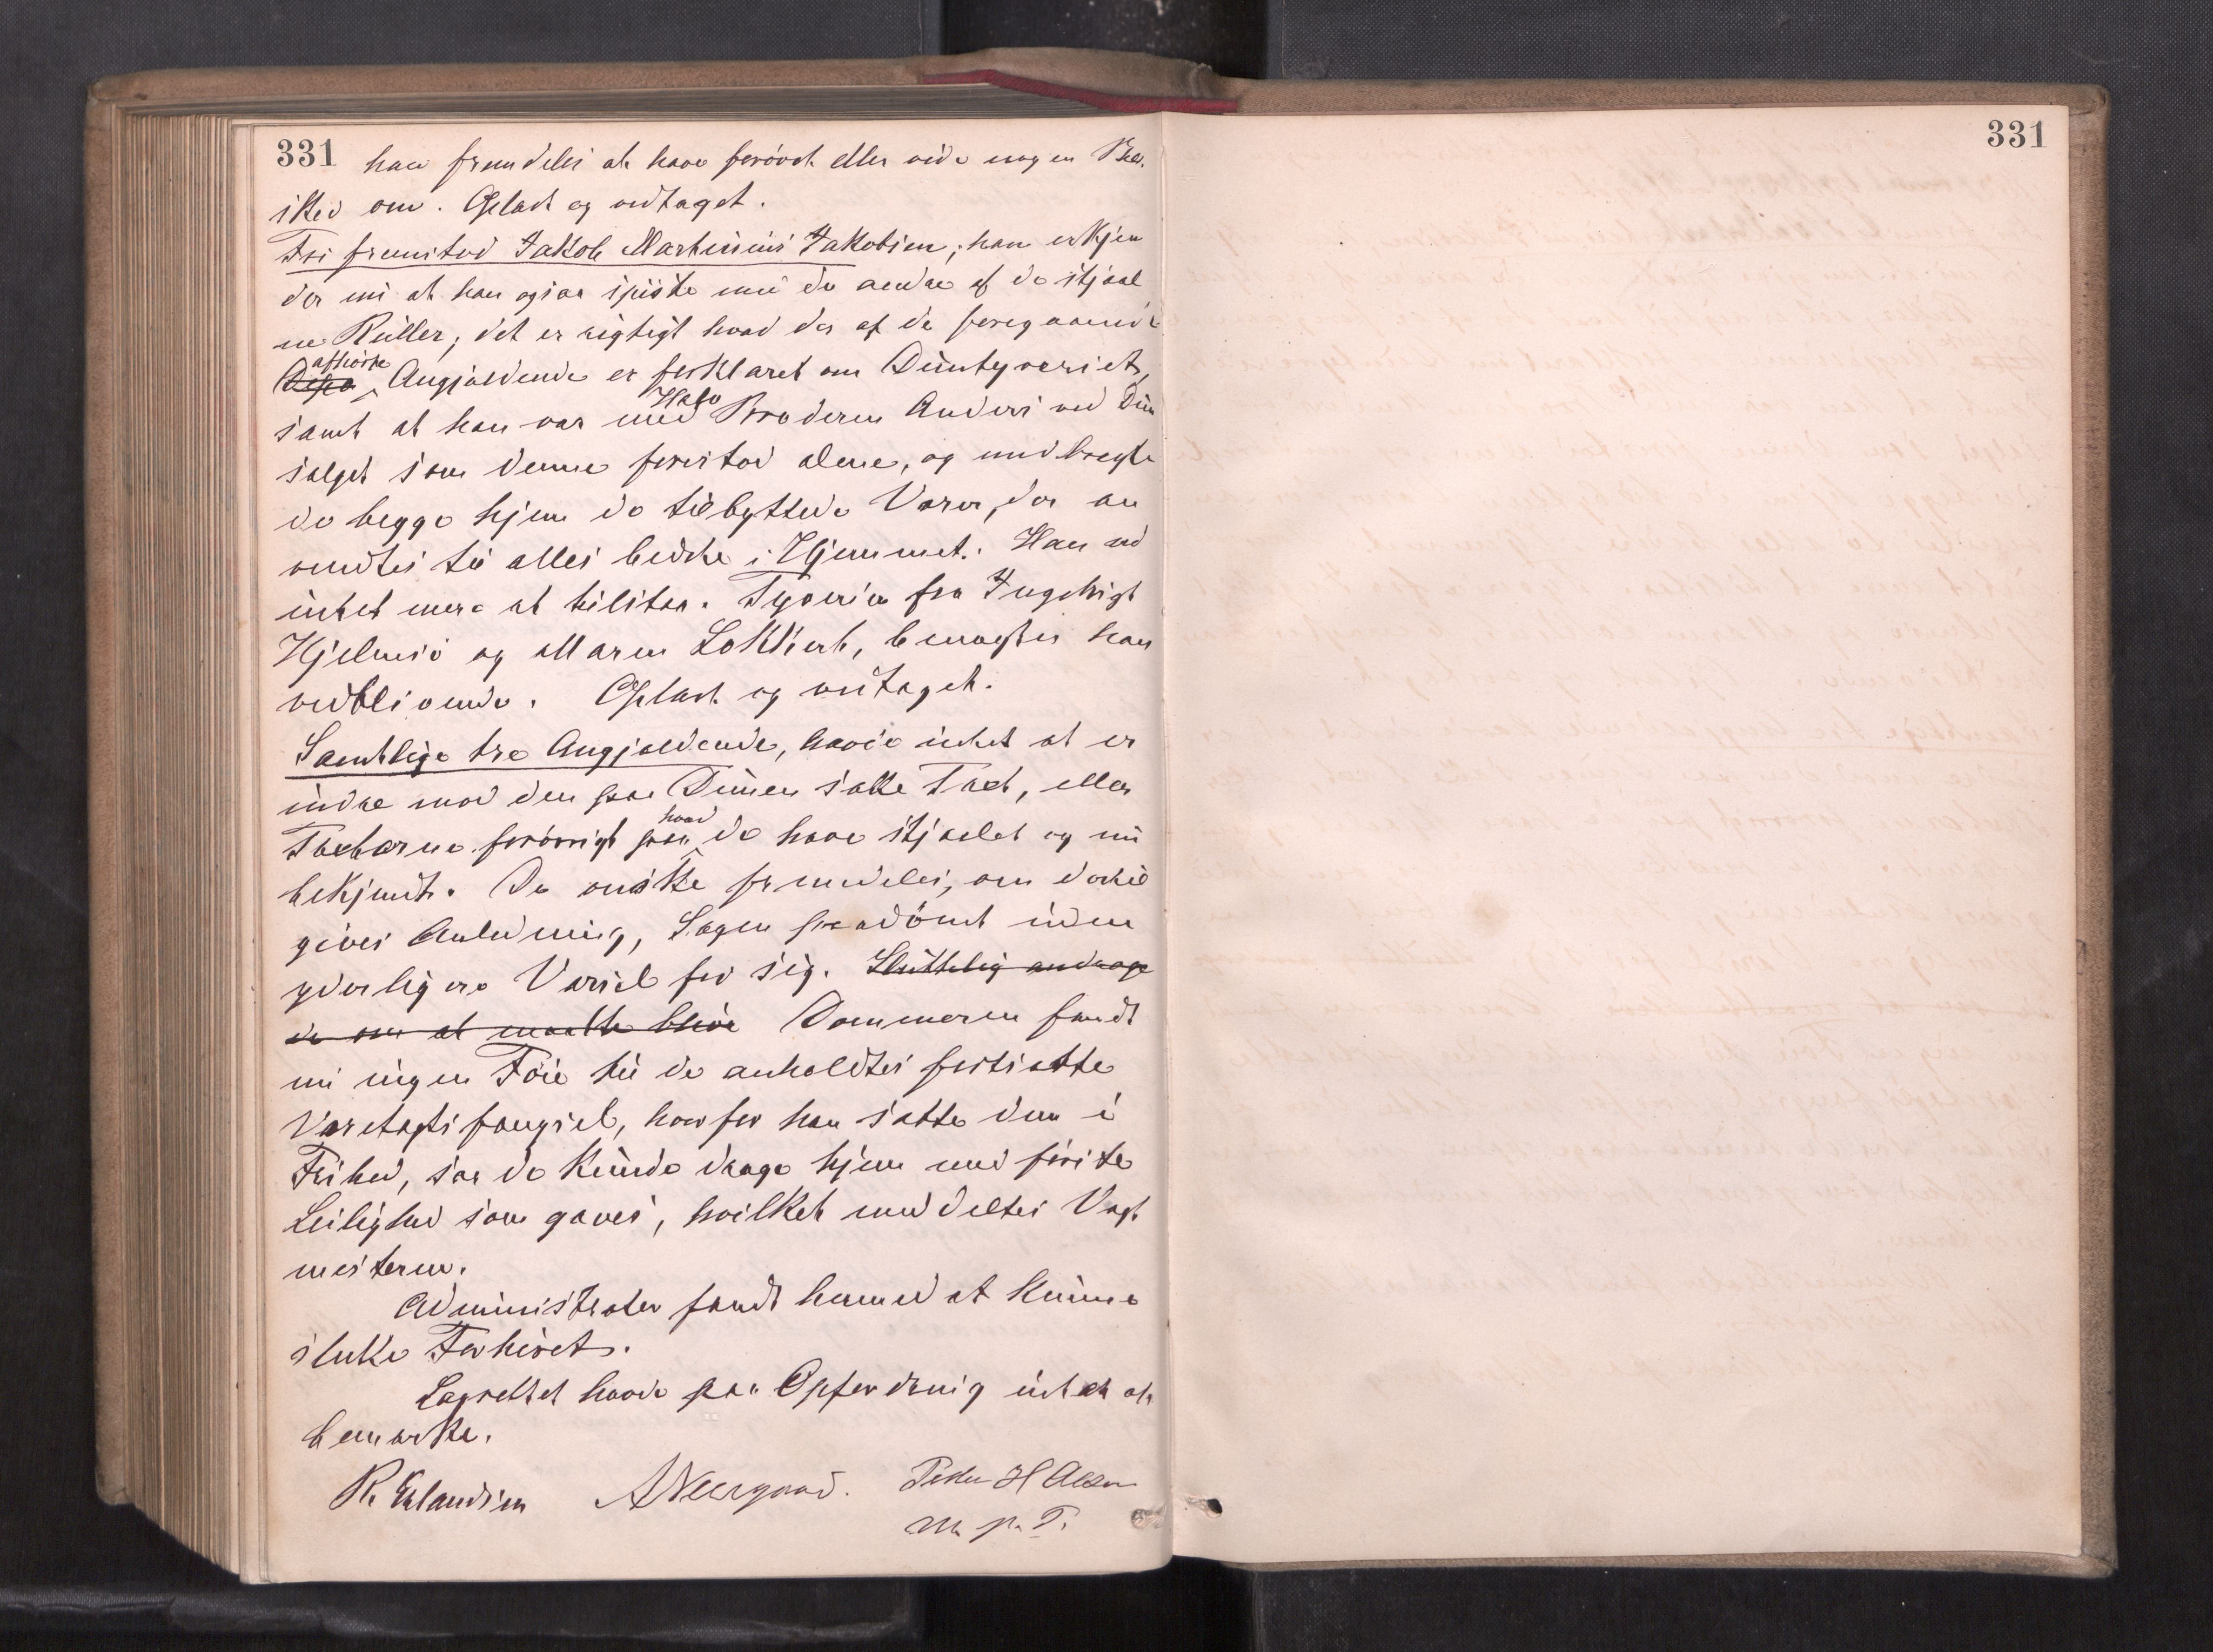 331 han fremdeles at have forøvet eller vide nogen Be-
sked om. Oplæst og vedtaget.
Fri fremstod Jakob Martinius Jakobsen; han erkjen
der nu at han ogsaa spiste med de andre af de stjaal
ne Kuller; det er rigtigt hvad der af de foregaaende
afhørte
Angjældende er forklaret om Duntyveriet,
samt at han var med Halvbroderen Anders ved Dun
salget som denne forestod alene, og medbragte
de begge hjem de tilbyttede Varer, der an
vendtes til alles bedste i Hjemmet. Han ved
intet mere at tilstaa. Tyverier fra Ingebrigt
Hjelmsö og Maren Lokkert, benægtes han
vedblivende. Oplæst og vedtaget.
Samtlige tre Angjældende, havde intet at er
indre mod den paa Dunen satte Taxt, eller
Taxterne forövrigt paa hvad de have stjaalet og nu
bekjendt. De önske fremdeles, om dertil
gives Anledning, Sagen paadömt uden
yderligere Varsel for sig. Sluttelig androge
de om at maatte blive Dommeren fandt
nu ingen Föie til de anholdtes fortsatte
Varetægtsfængsel, hvorfor han satte dem i
Frihed, saa de kunde drage hjem med förste
Leilighed som gaves, hvilket meddeltes Vagt
mesteren.
Administrator fandt hermed at kunne
slutte Forhöret.
Lagrettet havde paa Opfordring intet at
bemærke.
R. Erlandsen A Neergaard. Peder H Olsen
m. p. P.
331